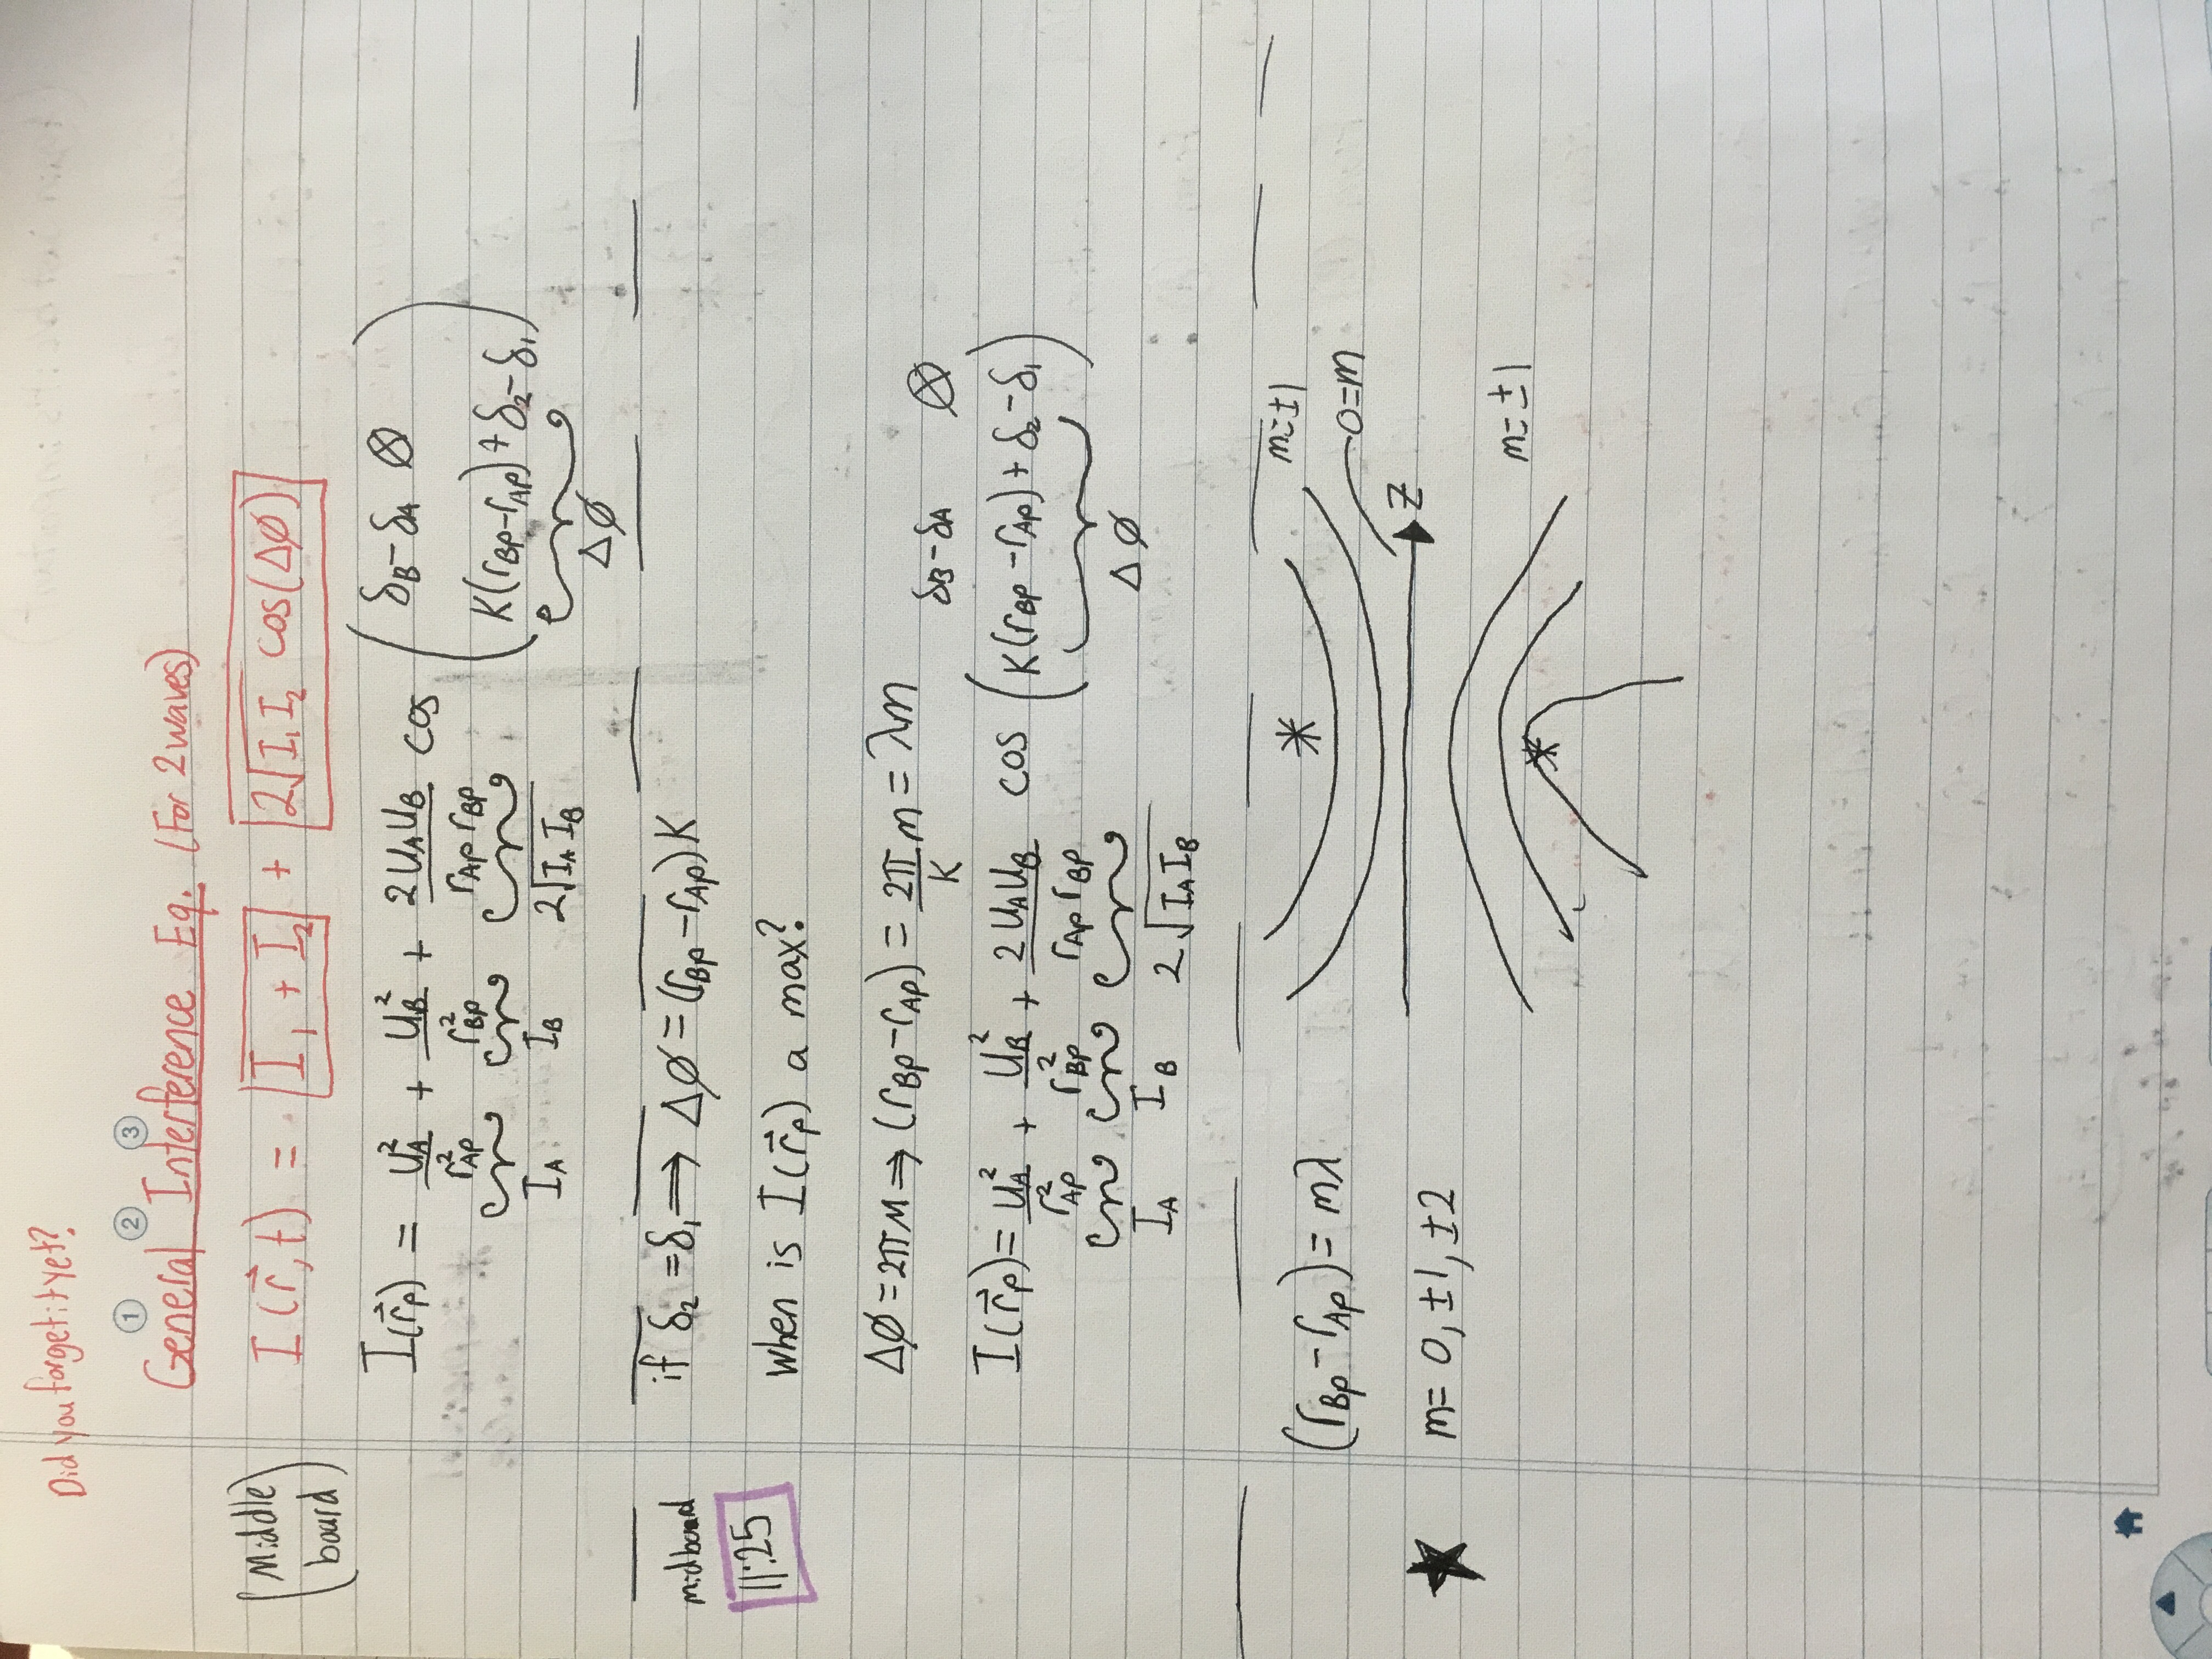 Did you forget it yet?
① ② ③
General Interference Eq. (For 2 waves)
(Middle board)
I(r⃗,t) = I₁ + I₂ + 2√I₁I₂ cos(Δϕ)
I(r⃗p) = U_A²/r_AP² + U_B²/r_BP² + 2U_AU_B/r_AP r_BP cos (K(r_BP-r_AP)+δ₂-δ₁)
δB-δA ⊗
I_A I_B 2√I_A I_B Δϕ
midboard
if δ₂=δ₁ ⟹ Δϕ=(r_BP-r_AP)K
11:25
When is I(r⃗p) a max?
Δϕ=2πM ⟹ (r_BP-r_AP) = 2π/K m = λm
δB-δA ⊗
I(r⃗p)= U_A²/r_AP² + U_B²/r_BP² + 2U_AU_B/r_AP r_BP cos (K(r_BP-r_AP)+δ₂-δ₁)
I_A I_B 2√I_A I_B Δϕ
(r_BP-r_AP)=mλ
m=±1
0=m
m= 0,±1,±2
Z
m=±1